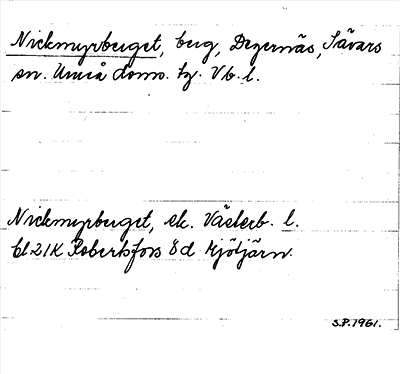 Nickmyrberget, berg, Degernäs, Sävars
sn. Umeå doms. tg. Vb. l.
Nickmyrberget, ek. Västerb. l.
bl 21K Robertsfors 8d Mjötjärn.
S.P. 1961.